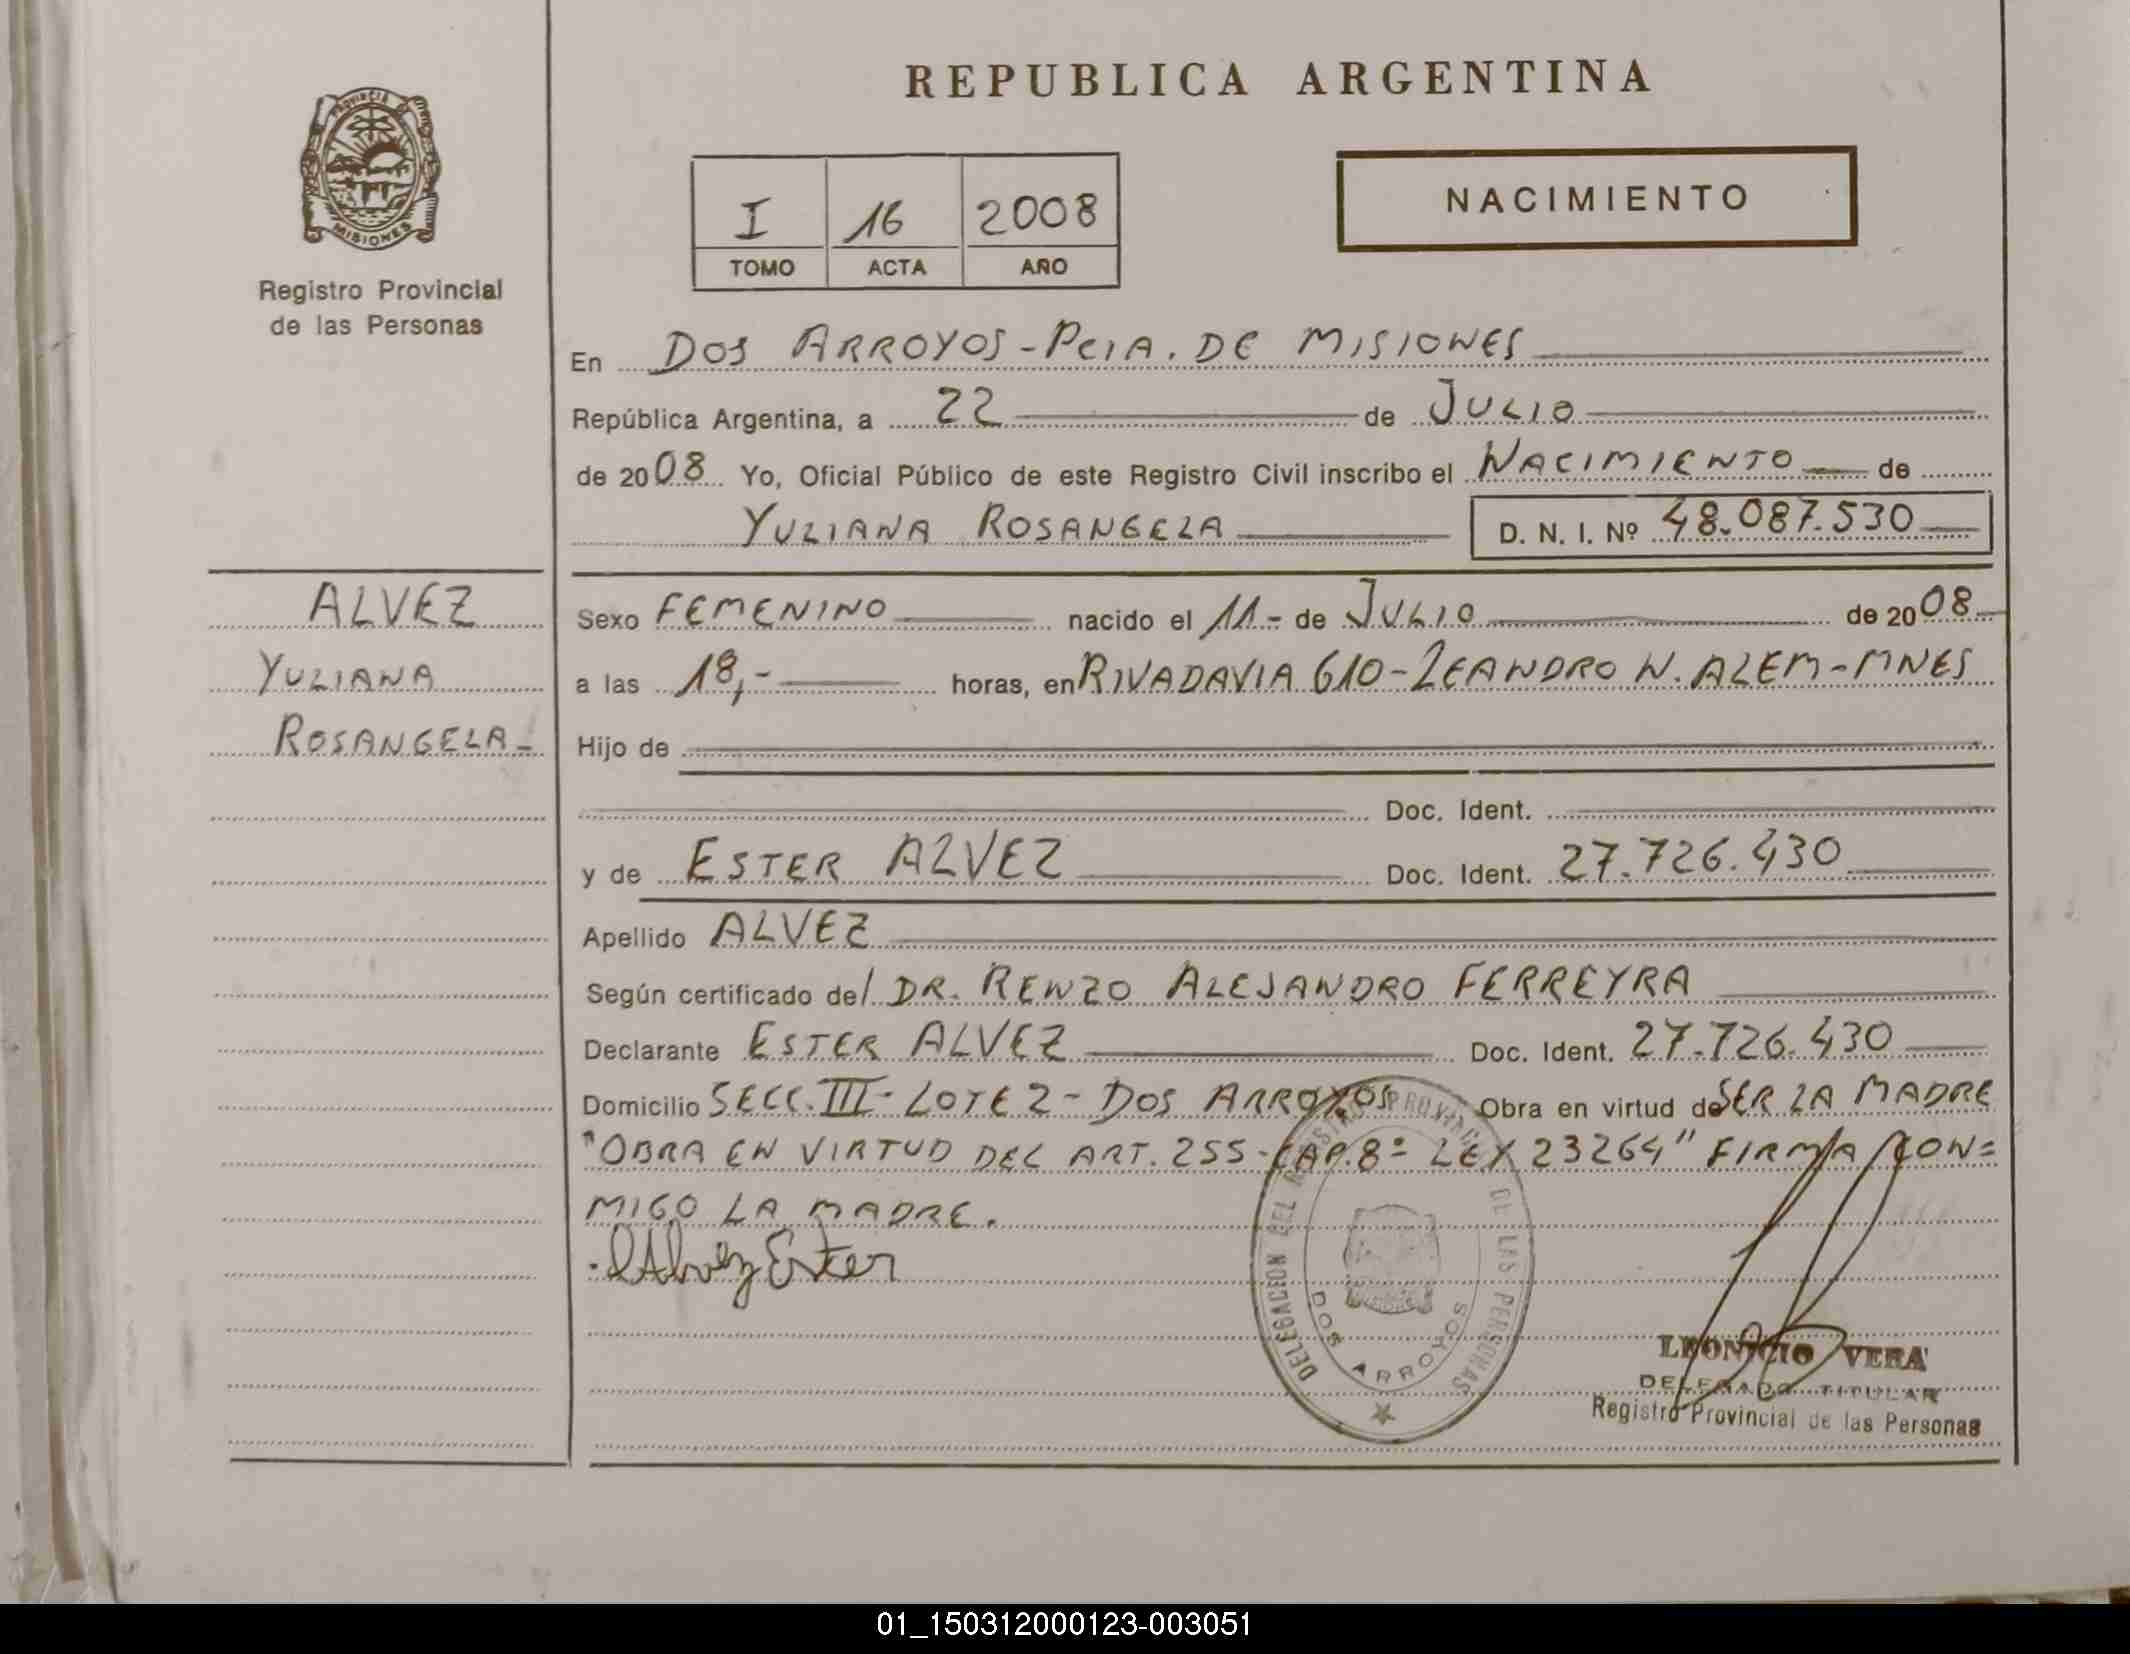 REPUBLICA ARGENTINA
PROVINCIA DE MISIONES
Registro Provincial
de las Personas
I 16 2008
TOMO ACTA AÑO
NACIMIENTO
En DOS ARROYOS - PCIA. DE MISIONES
República Argentina, a 22 de JULIO
de 2008 Yo, Oficial Público de este Registro Civil inscribo el NACIMIENTO de
YULIANA ROSANGELA D. N. I. Nº 48.087.530
ALVEZ
YULIANA
ROSANGELA -
Sexo FEMENINO nacido el 11 - de JULIO de 2008
a las 18,- horas, en RIVADAVIA 610 - LEANDRO N. ALEM - MNES
Hijo de
Doc. Ident.
y de ESTER ALVEZ Doc. Ident. 27.726.430
Apellido ALVEZ
Según certificado del DR. RENZO ALEJANDRO FERREYRA
Declarante ESTER ALVEZ Doc. Ident. 27.726.430
Domicilio SECC. III - LOTE 2 - DOS ARROYOS Obra en virtud de SER LA MADRE
"OBRA EN VIRTUD DEL ART. 255 - CAP. 8º LEY 23264" FIRMA CON=
MIGO LA MADRE.
Alvez Ester
DELEGACION DEL REGISTRO PROVINCIAL DE LAS PERSONAS
DOS ARROYOS
LEONICIO VERA
DELEGADO TITULAR
Registro Provincial de las Personas
01_150312000123-003051